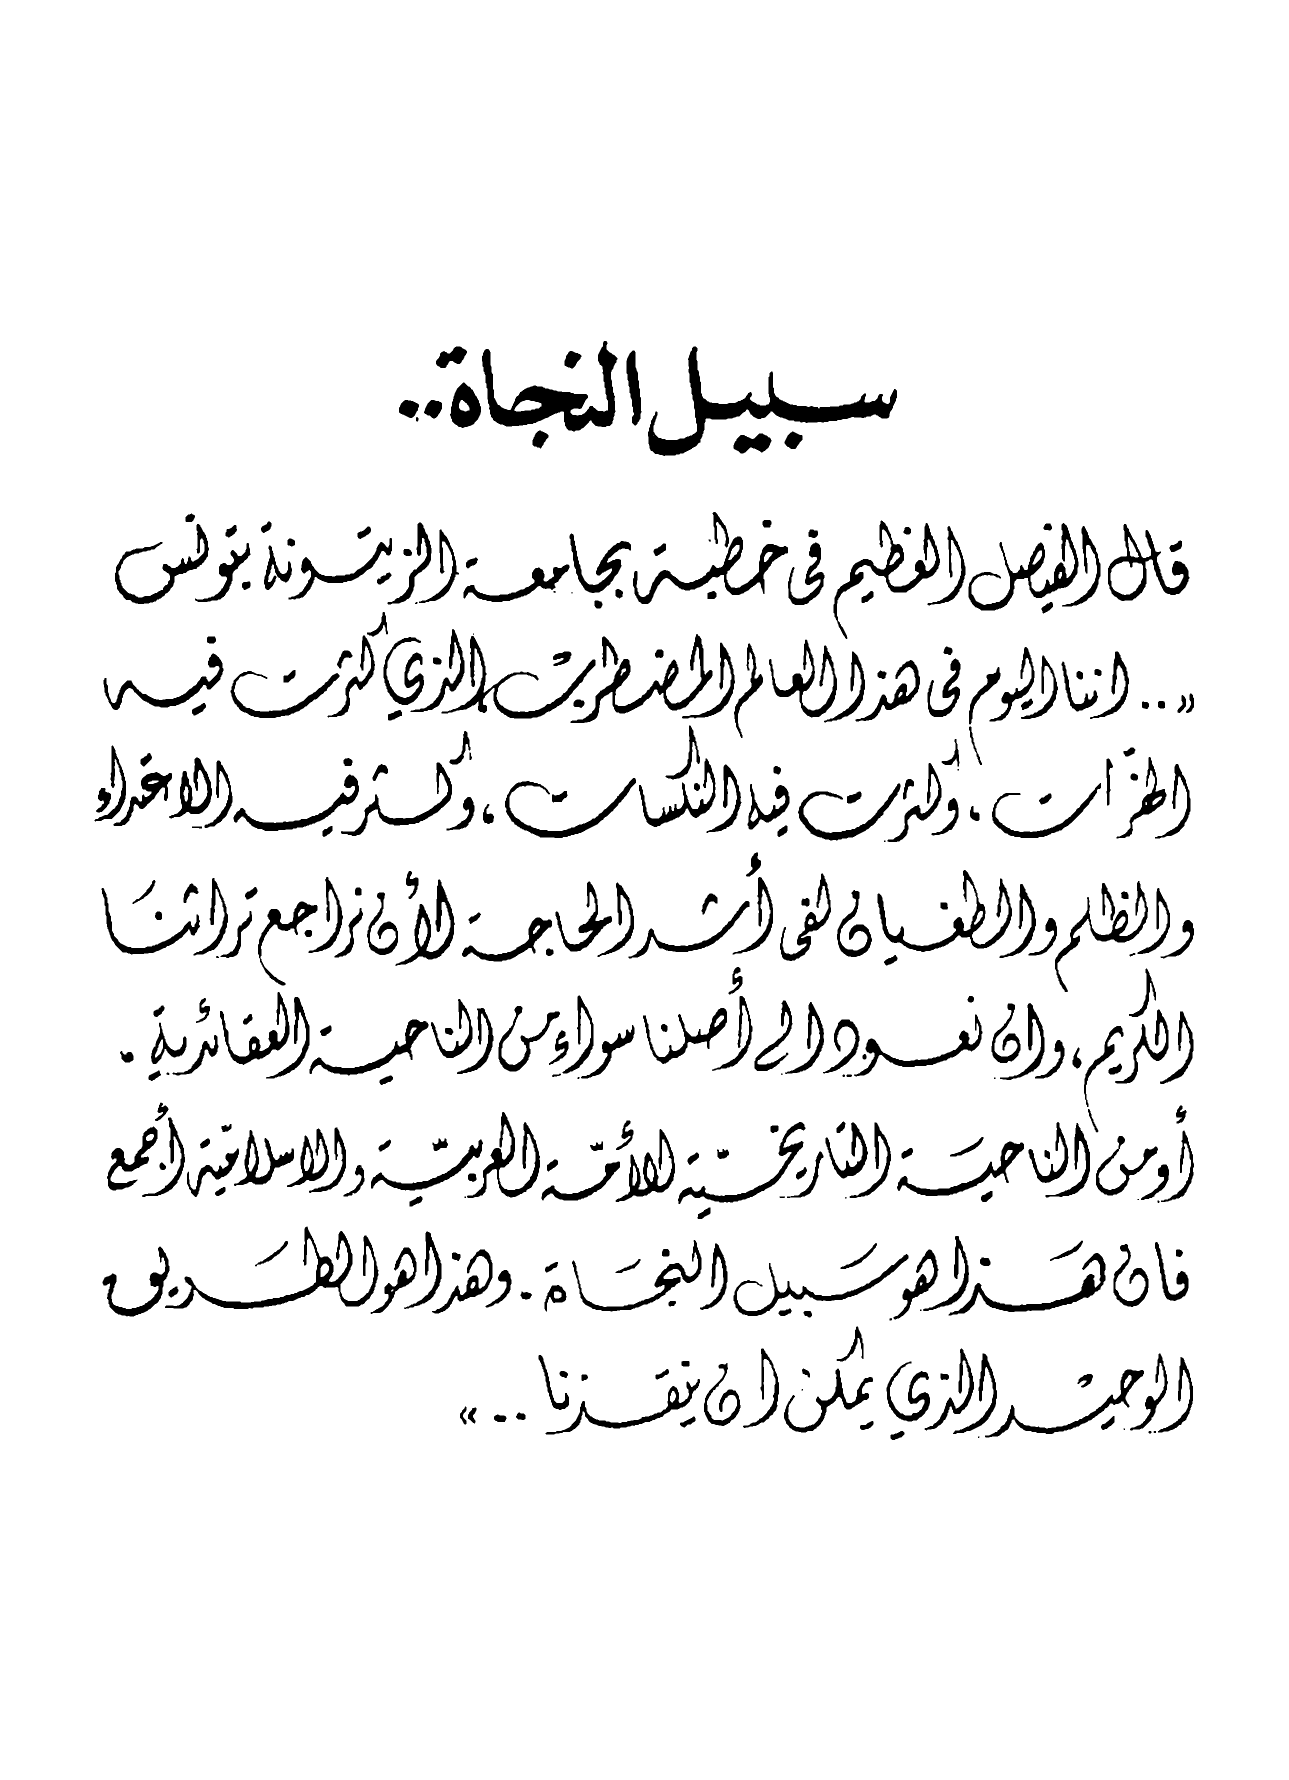 سبيل النجاة..
قال الفيصل العظيم فى خطبة بجامعة الزيتونة بتونس
« .. اننا اليوم فى هذا العالم المضطرب، الذي كثرت فيه
الهزّات ، وكثرت فيه النكسات ، وكثر فيه الاعتداء
والظلم والطغيان لفى أشد الحاجة لأن نراجع تراثنا
الكريم ، وان نعود الى أصلنا سواء من الناحية العقائدية .
أو من الناحية التاريخيّة للأمّة العربيّة والاسلاميّة أجمع
فان هَذا هو سَبيل النجَاة . وهذا هو الطَريق
الوحيد الذي يمكن ان ينقذنا .. »